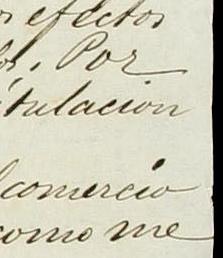 efectos
Por
itulacion
comercio
como me